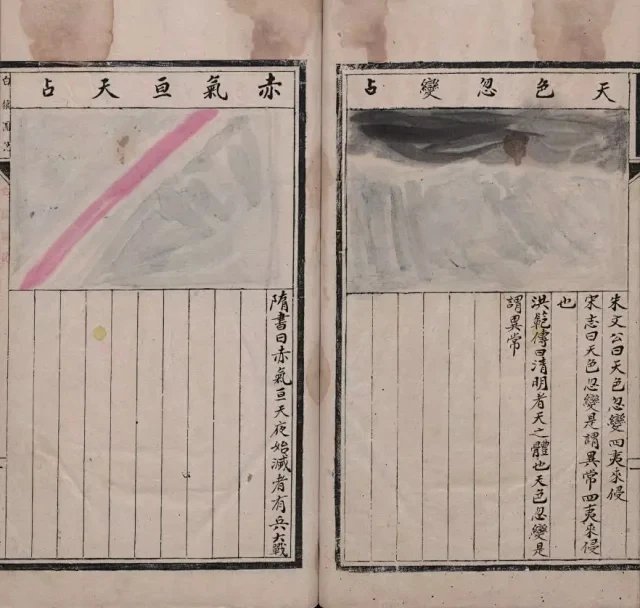 天色忽變占
朱文公曰天色忽變四夷來侵
宋志曰天色忽變是謂異常四夷來侵
也
洪範傳曰清明者天之體也天色忽變是
謂異常
赤氣亘天占
隋書曰赤氣亘天夜始滅者有兵大戰